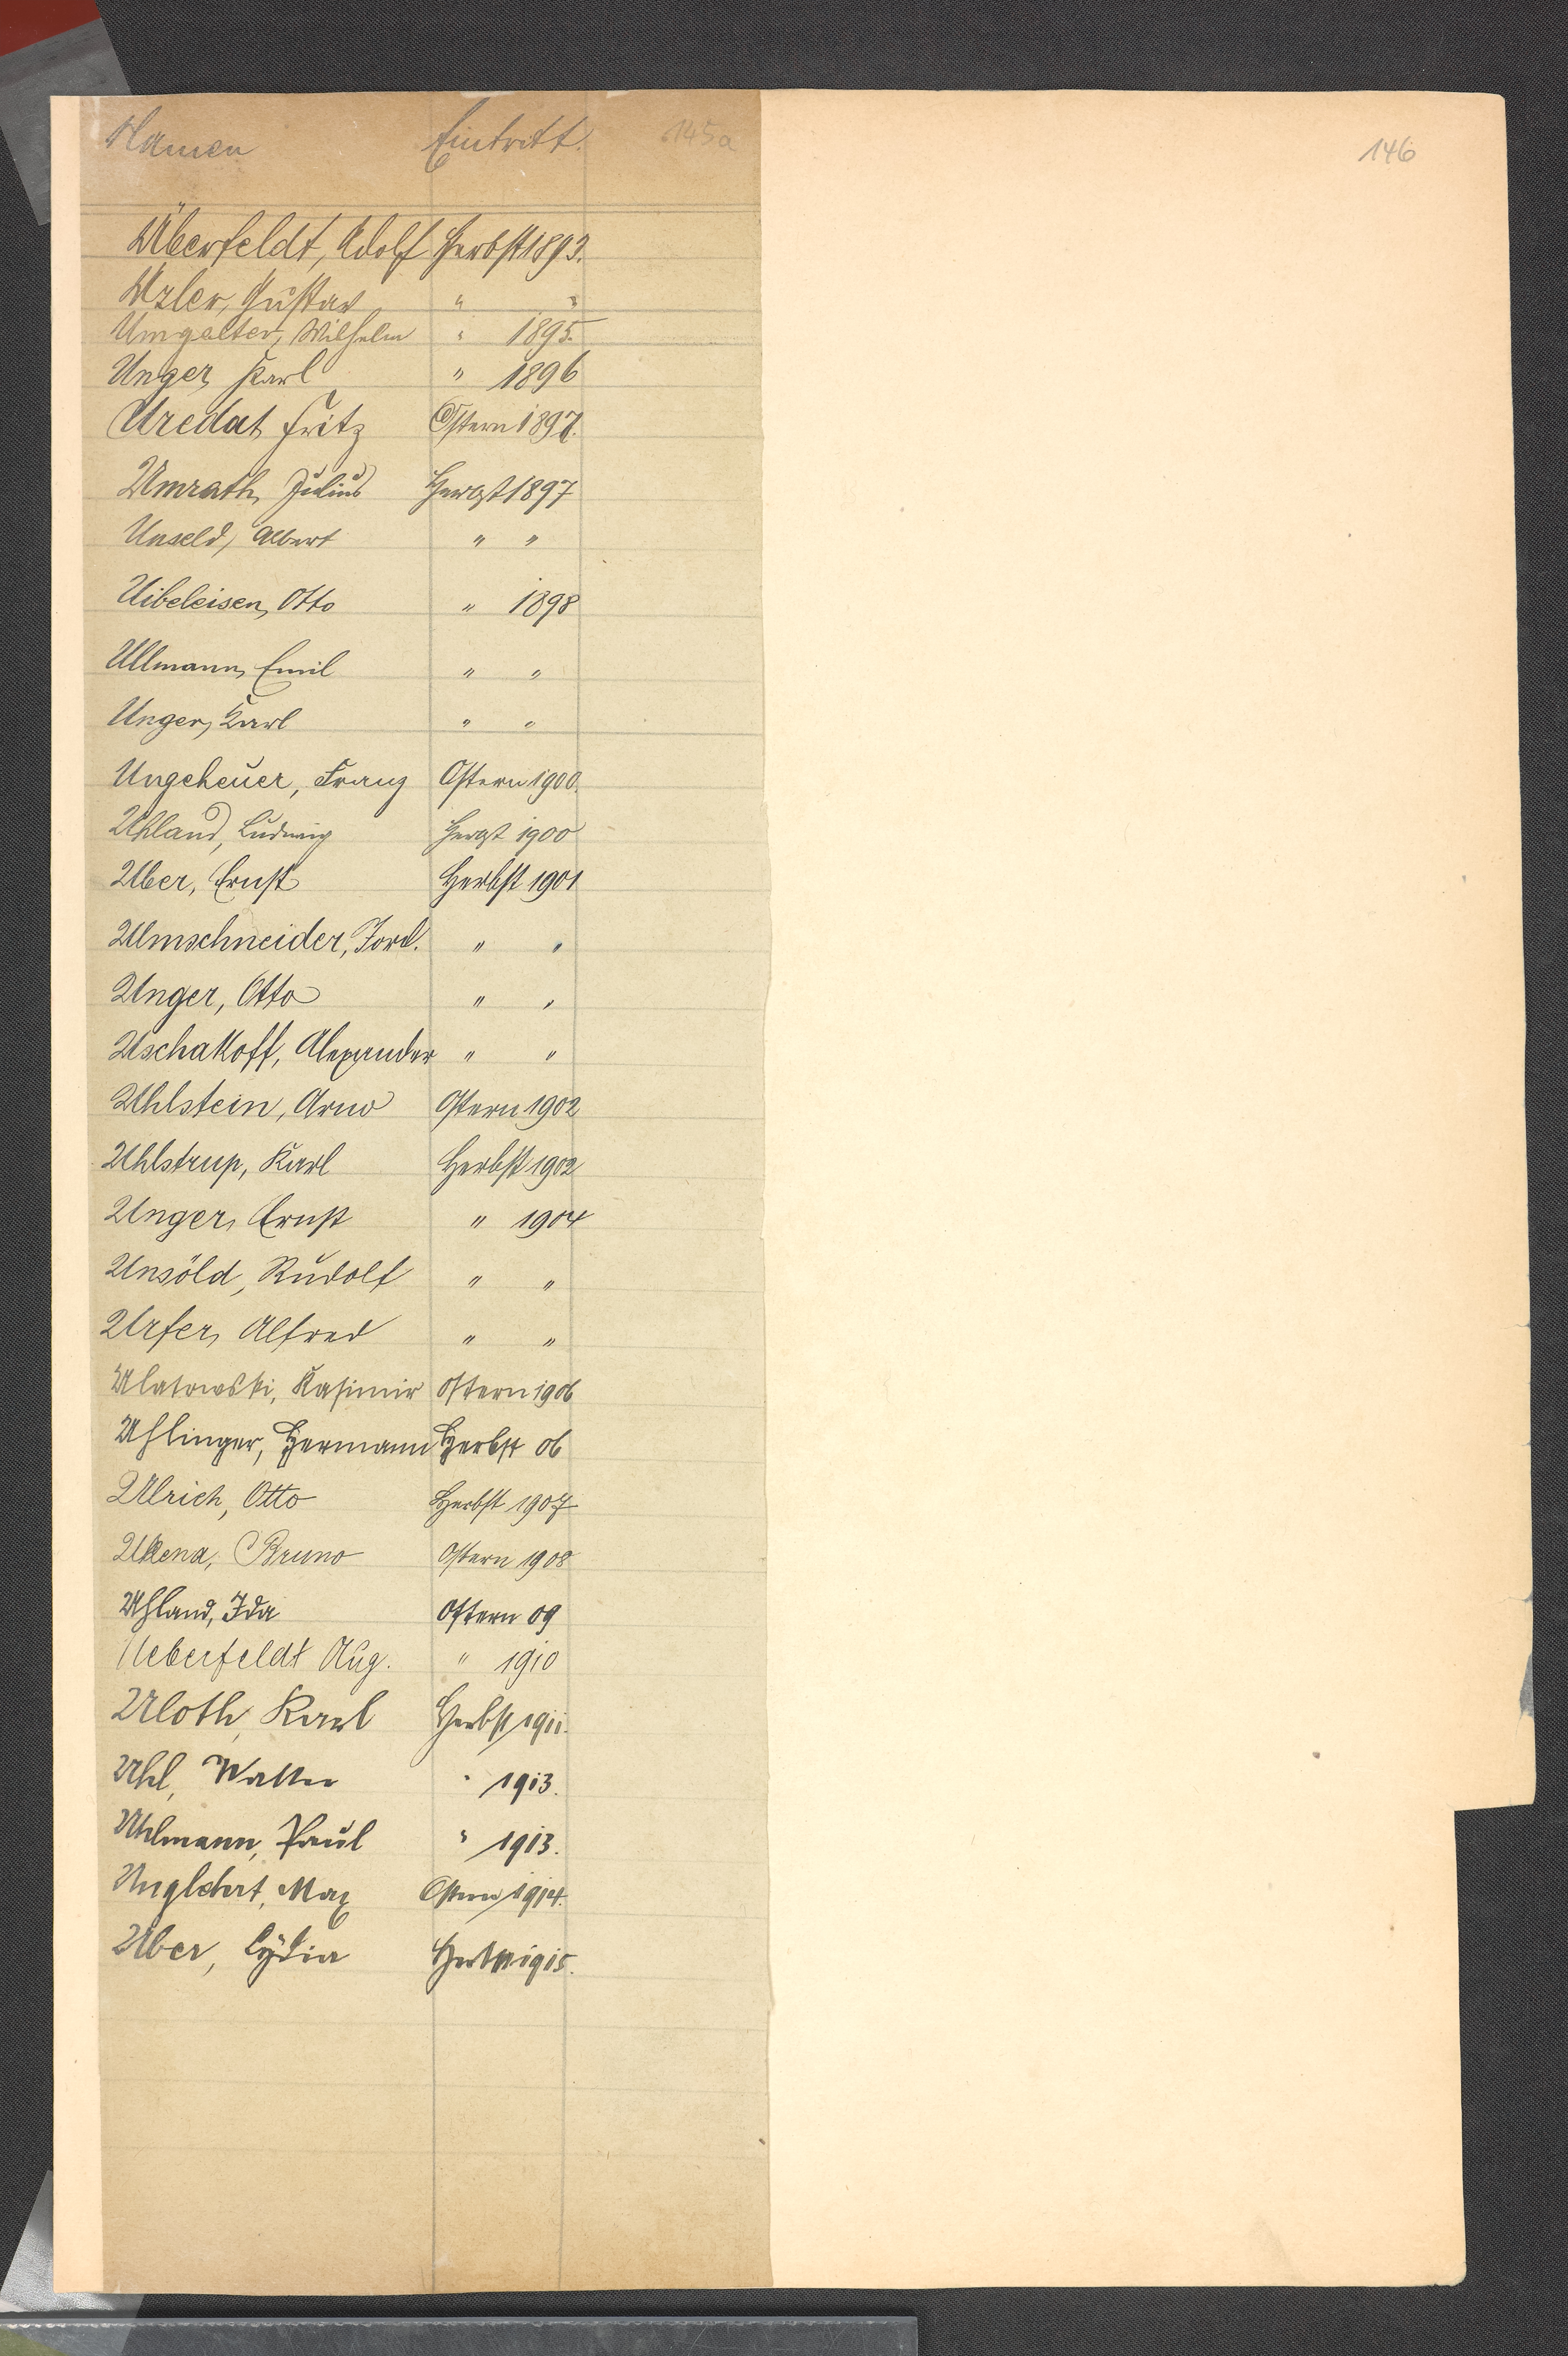 Namen Eintritt. 145a
146
Überfeldt, Adolf Herbst 1893.
Uzler, Gustav " "
Umgelter, Wilhelm " 1895.
Unger, Karl " 1896
Uredat, Fritz Ostern 1897.
Umrath, Julius Herbst 1897
Unseld, Albert " "
Uibeleisen, Otto " 1898
Ullmann, Emil " "
Unger, Karl " "
Ungeheuer, Franz Ostern 1900.
Uhland, Ludwig Herbst 1900
Uber, Ernst Herbst 1901
Umschneider, Ford. " "
Unger, Otto " "
Uschakoff, Alexander " "
Uhlstein, Arno Ostern 1902
Uhlstrup, Karl Herbst 1902
Unger, Ernst " 1904
Unsöld, Rudolf " "
Urfer, Alfred " "
Ulatowski, Kasimir Ostern 1906
Uhlinger, Hermann Herbst 06
Ulrich, Otto Herbst 1907
Ukena, Bruno Ostern 1908
Uhland, Ida Ostern 09
Ueberfeldt Aug. " 1910
Uloth, Karl Herbst 1911.
Uhl, Walter " 1913.
Uhlmann, Paul " 1913.
Max Ostern 1914.
Uber, Lydia Herbst 1915.